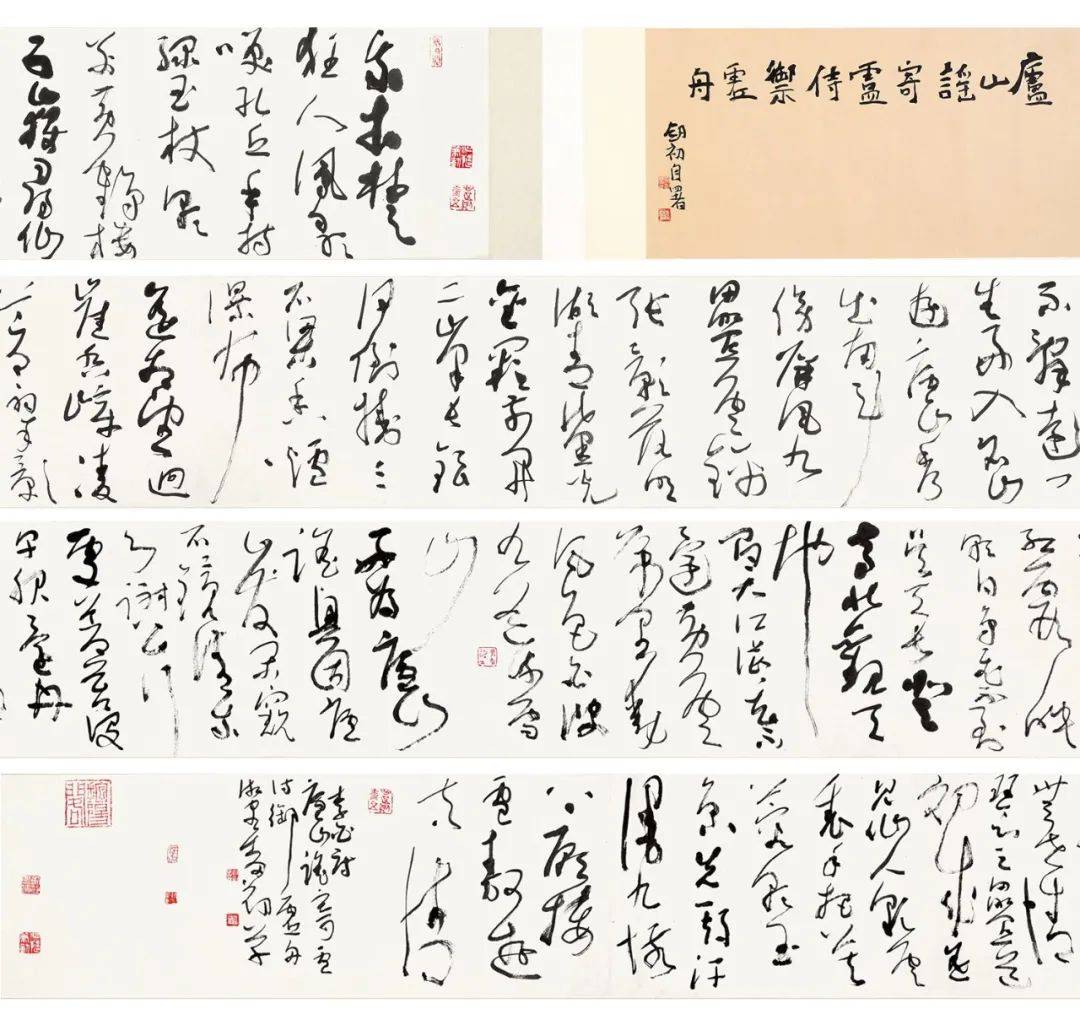 廬山謠寄盧侍禦虛舟
初自署
我本楚
狂人鳳歌
笑孔丘手持
綠玉杖朝
別黃鶴樓
五嶽尋仙
不辭遠一
生好入名山
遊廬山秀
出南斗
傍屏風九
疊雲錦
張影落明
湖青黛光
金闕前開
二峰長銀
河倒掛三
石梁香爐
瀑布
遙相望迴
崖沓嶂凌
蒼蒼翠影
紅霞映
朝日鳥飛不到
吳天長登
高壯觀天
地
間大江茫茫去不
還黃雲
萬里動
風色白波
九道流雪
山
好為廬山
謠興因廬
山發閑窺
石鏡清我
心謝公行
處蒼苔沒
早服還丹
無世情
琴心三疊道
初成遙
見仙人彩雲
裏手把芙
蓉朝玉
京先期汗
漫九垓
上願接
盧敖遊
太清
李白詩
廬山謠寄盧
侍御虛舟